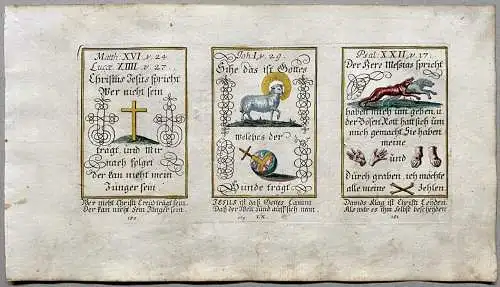 Matth. XVI, v. 24.
Lucæ XIIII, v. 27.
Christus Jesus spricht
Wer nicht sein
trägt, und Mir
nach folget
der kan nicht mein
Jünger sein.
Wer nicht Christi Creutz trägt sein,
Der kan nicht Sein Jünger sein.
Joh. I, v. 29.
Sihe das ist Gottes
welches der
Sünde trägt.
JESUS ist daß Gottes Lamm
Daß der Welt Sünd auff sich nam.
Psal. XXII, v. 17.
Der Herr Messias spricht
haben mich umgeben, u.
der Bösen Rott hat sich um
mich gemacht Sie haben
meine
und
durch graben, ich möchte
alle meine
Zehlen.
Davids Klag ist Christi Leyden,
Als wär es ihm selbst bescheyden